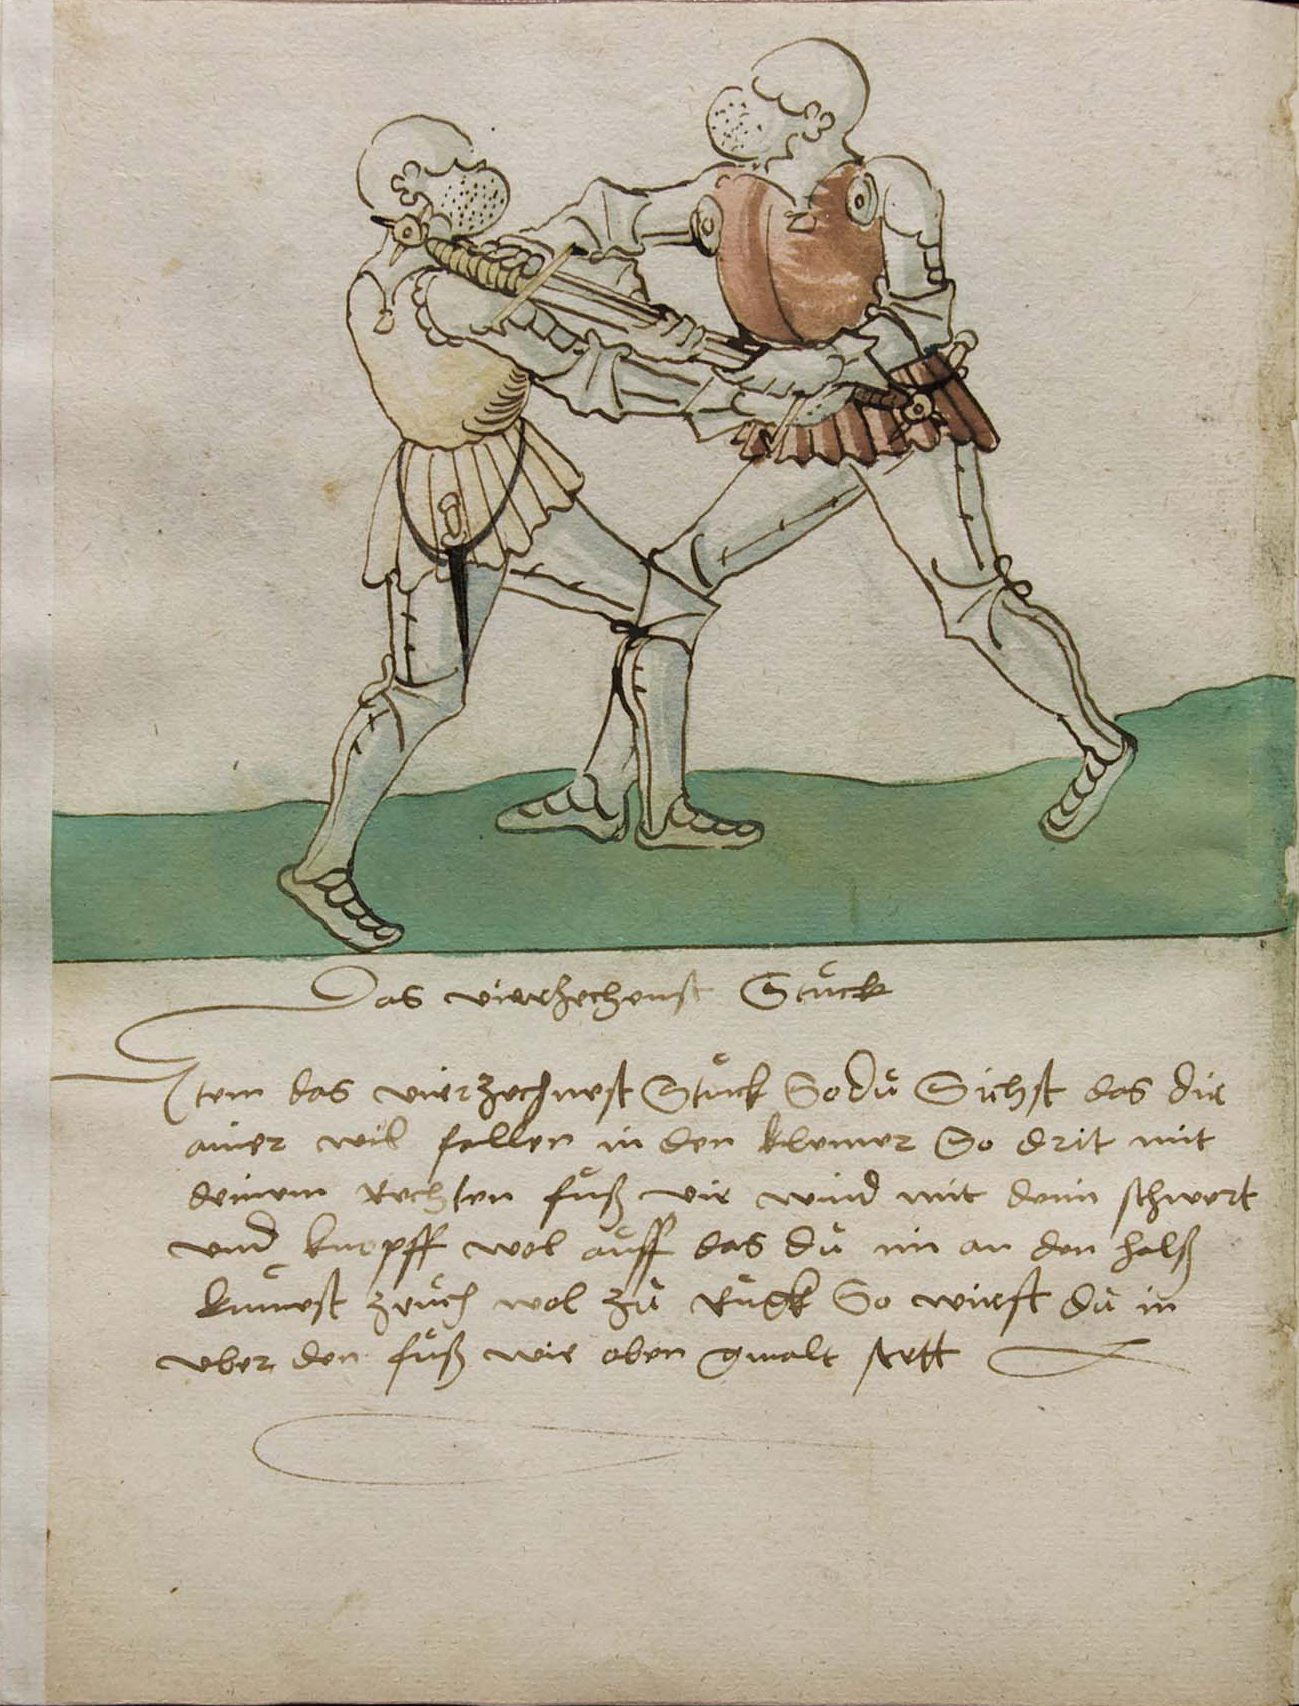 Das vierzechenst Stuck
Item das vierzechnest Stuck So du Sichst das dir
ainer wil fallen in den klemer So drit mit
deinem Rechten fuß vir wind mit deim schwert
vnd knopff wol auff das du im an den halß
kumest zeuch wol zu Ruck So wirfst du in
vber den fuß wie oben gmalt stett